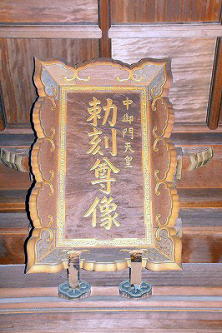 中御門天皇
勅刻尊像